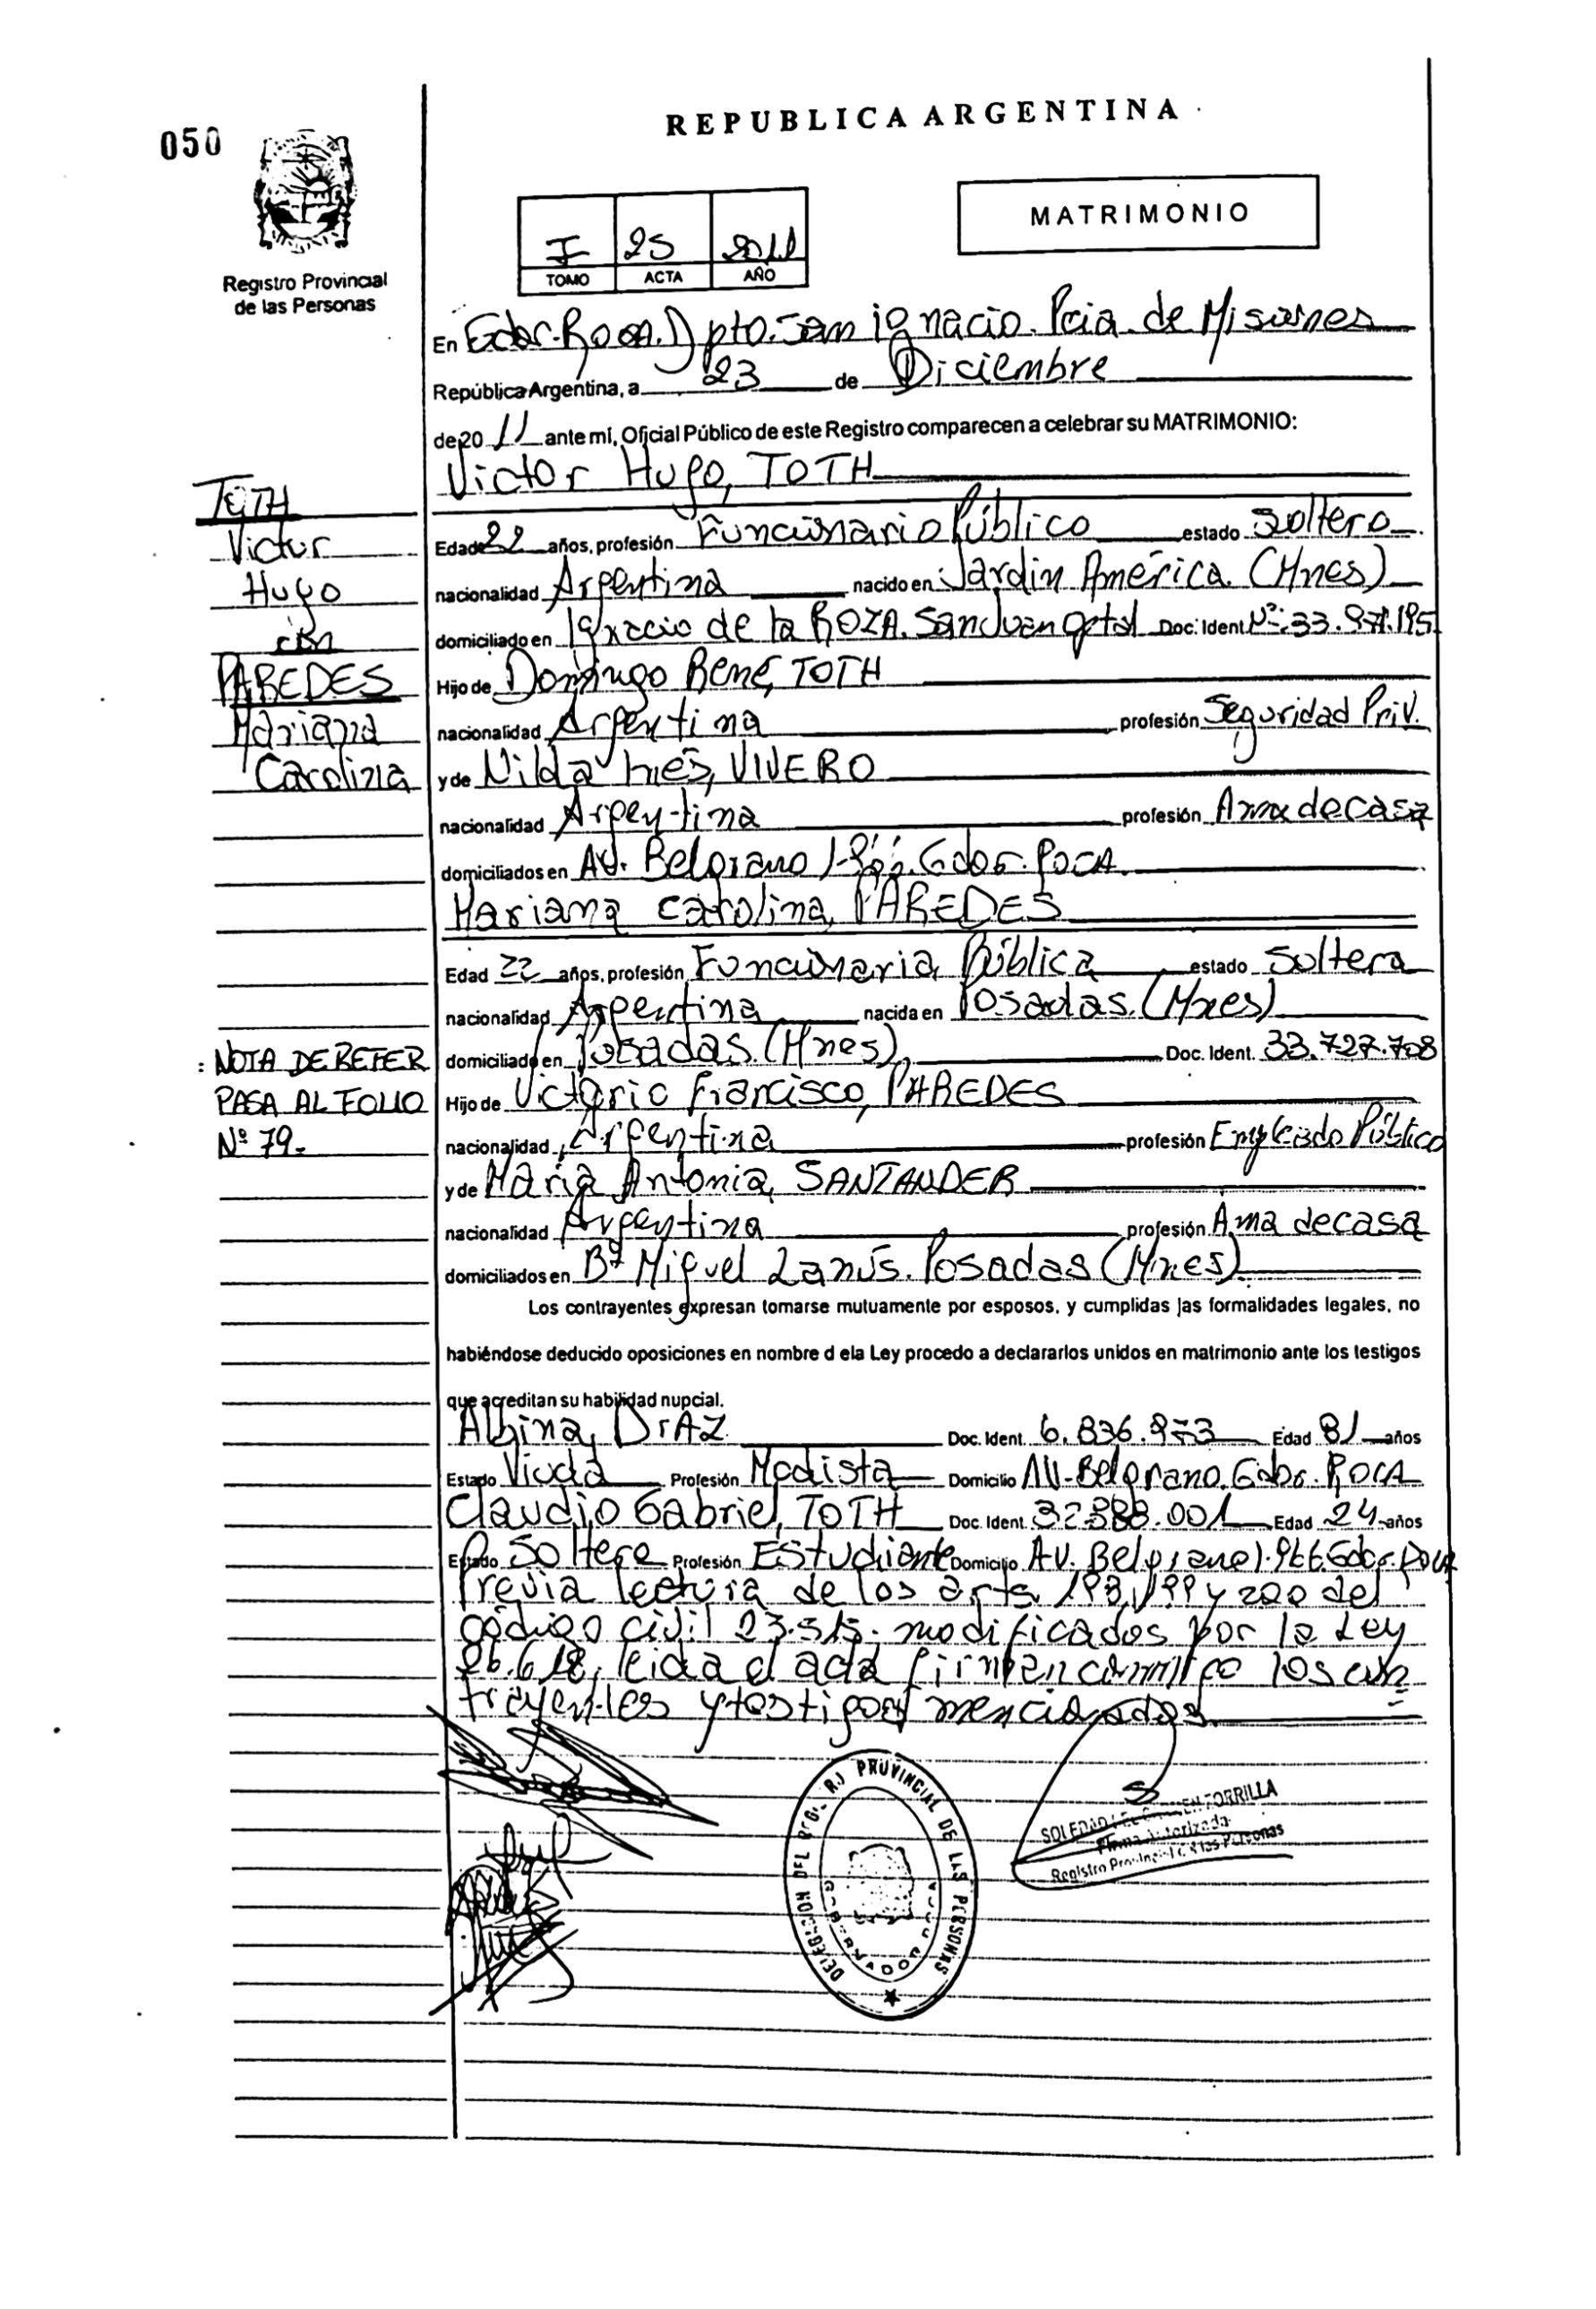 050
REPUBLICA ARGENTINA
MATRIMONIO
I 25 2011
TOMO ACTA AÑO
Registro Provincial
de las Personas
En Gdor. Roca. Dpto. San Ignacio. Pcia. de Misiones
República Argentina, a 23 de Diciembre
de 20 11 ante mí, Oficial Público de este Registro comparecen a celebrar su MATRIMONIO:
Victor Hugo, TOTH
TOTH
Victor
Hugo
con
PAREDES
Mariana
Carolina
Edad 22 años, profesión Funcionario Público estado Soltero
nacionalidad Argentina nacido en Jardín América. (Mnes)
domiciliado en Ignacio de la ROZA. San Juan Doc. Ident. Nº: 33.971.195
Hijo de Domingo René, TOTH
nacionalidad Argentina profesión Seguridad Priv.
y de Nilda Inés, VIVERO
nacionalidad Argentina profesión Ama de casa
domiciliados en AV. Belgrano Gdor. ROCA.
Mariana Carolina, PAREDES
Edad 22 años, profesión Funcionaria Pública estado Soltera
nacionalidad Argentina nacida en Posadas. (Mnes)
domiciliado en Posadas. (Mnes), Doc. Ident. 33.727.708
: NOTA DE REFER
PASA AL FOLIO
Nº 79.
Hijo de Victorio Francisco, PAREDES
nacionalidad Argentina profesión Empleado Público
y de María Antonia, SANTANDER
nacionalidad Argentina profesión Ama de casa
domiciliados en Bº Miguel Lanús. Posadas (Mnes)
Los contrayentes expresan tomarse mutuamente por esposos, y cumplidas las formalidades legales, no
habiéndose deducido oposiciones en nombre d ela Ley procedo a declararlos unidos en matrimonio ante los testigos
que acreditan su habilidad nupcial.
Albina, DIAZ Doc. Ident. 6.836.973 Edad 81 años
Estado Viuda Profesión Modista Domicilio AV. Belgrano. Gdor. ROCA
Claudio Gabriel, TOTH Doc. Ident. 32.388.001 Edad 24 años
Estado Soltero Profesión Estudiante Domicilio AV. Belgrano 1.966 Gdor. ROCA
Previa lectura de los arts. 198, 199 y 200 del
código civil 23.515. modificados por la Ley
26.618, leida el acta firman conmigo los con
trayentes y testigos mencionados
DELEGACION DEL REG. PROVINCIAL DE LAS PERSONAS
GOBERNADOR ROCA
SOLEDAD TORRILLA
Firma Autorizada
Registro Provincial de las Personas